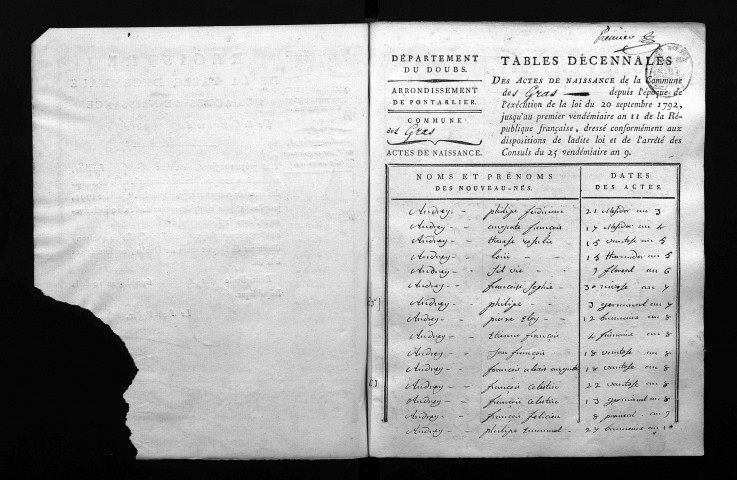 Premier
DÉPARTEMENT
DU DOUBS.
ARRONDISSEMENT
DE PONTARLIER.
COMMUNE
des Gras
ACTES DE NAISSANCE.
TABLES DÉCENNALES
Des Actes de naissance de la Commune
des Gras depuis l'époque de
l'exécution de la loi du 20 septembre 1792,
jusqu'au premier vendémiaire an 11 de la Ré-
publique française, dressé conformément aux
dispositions de ladite loi et de l'arrêté des
Consuls du 25 vendémiaire an 9.
NOMS ET PRÉNOMS
DES NOUVEAU-NÉS.
DATES
DES ACTES.
Andrey - philipe 21 Messidor an 3
Andrey - auguste françois 17 Messidor an 4
Andrey - therese rosalie 15 vantose an 5
Andrey - louis 18 thermidor an 5
Andrey - Silvie 9 floreal an 6
Andrey - françoise Sophie 30 nivose an 7
Andrey - philipe 3 germinal an 7
Andrey - pierre Eloy 12 brumaire an 8
Andrey - Etienne françois 4 frimaire an 8
Andrey - Jean françois 18 vantose an 8
Andrey - françois alexis auguste 18 vantose an 8
Andrey - françois celestin 22 vantose an 8
Andrey - françois celestin 13 germinal an 8
Andrey - françois felicien 8 prairial an 9
Andrey - philipe Emanuel 27 brumaire an 10